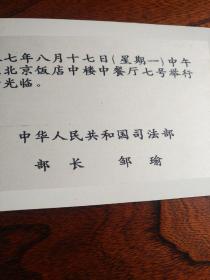 七年八月十七日(星期一)中午
北京饭店中楼中餐厅七号举行
光临。
中华人民共和国司法部
部 长 邹 瑜